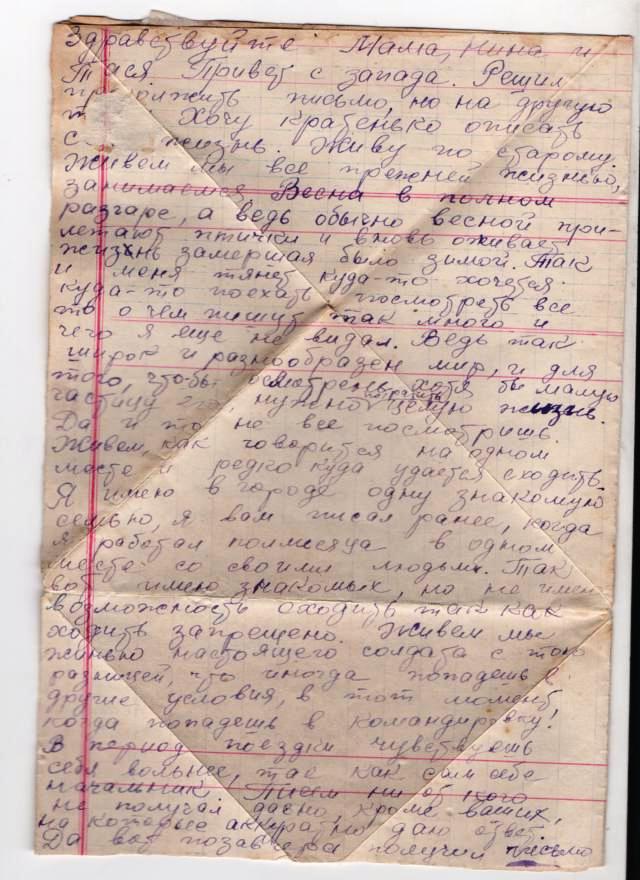 Здравствуйте Мама, Нина и
Тася. Привет с запада. Решил
продолжить письмо, но на другую
Хочу кратенько описать
жизнь. Живу по старому.
Живем мы все прежней жизнью,
занимаемся Весна в полном
разгаре, а ведь обычно весной при-
летают птички и вновь оживает
жизнь замершая было зимой. Так
и меня тянет куда-то хочется
куда-то поехать посмотреть все
то о чем пишут так много и
чего я еще не видал. Ведь так
широк и разнообразен мир, и для
того, чтобы осмотреть хотя бы малую
частицу его, нужно потратить целую жизнь.
Да и то не все посмотришь.
Живем, как говорится на одном
месте и редко куда удается сходить.
Я имею в городе одну знакомую
семью, я вам писал ранее, когда
я работал полмесяца в одном
месте со своими людьми. Так
вот имею знакомых, но не имею
возможности сходить так как
ходить запрещено. Живем мы
жизнью настоящего солдата с той
разницей, что иногда попадешь в
другие условия, в тот момент,
когда попадешь в командировку!
В период поездки чувствуешь
себя вольнее, так как сам себе
начальник Писем ни от кого
не получал давно, кроме ваших,
на которые аккуратно даю ответ.
Да вот позавчера получил письмо